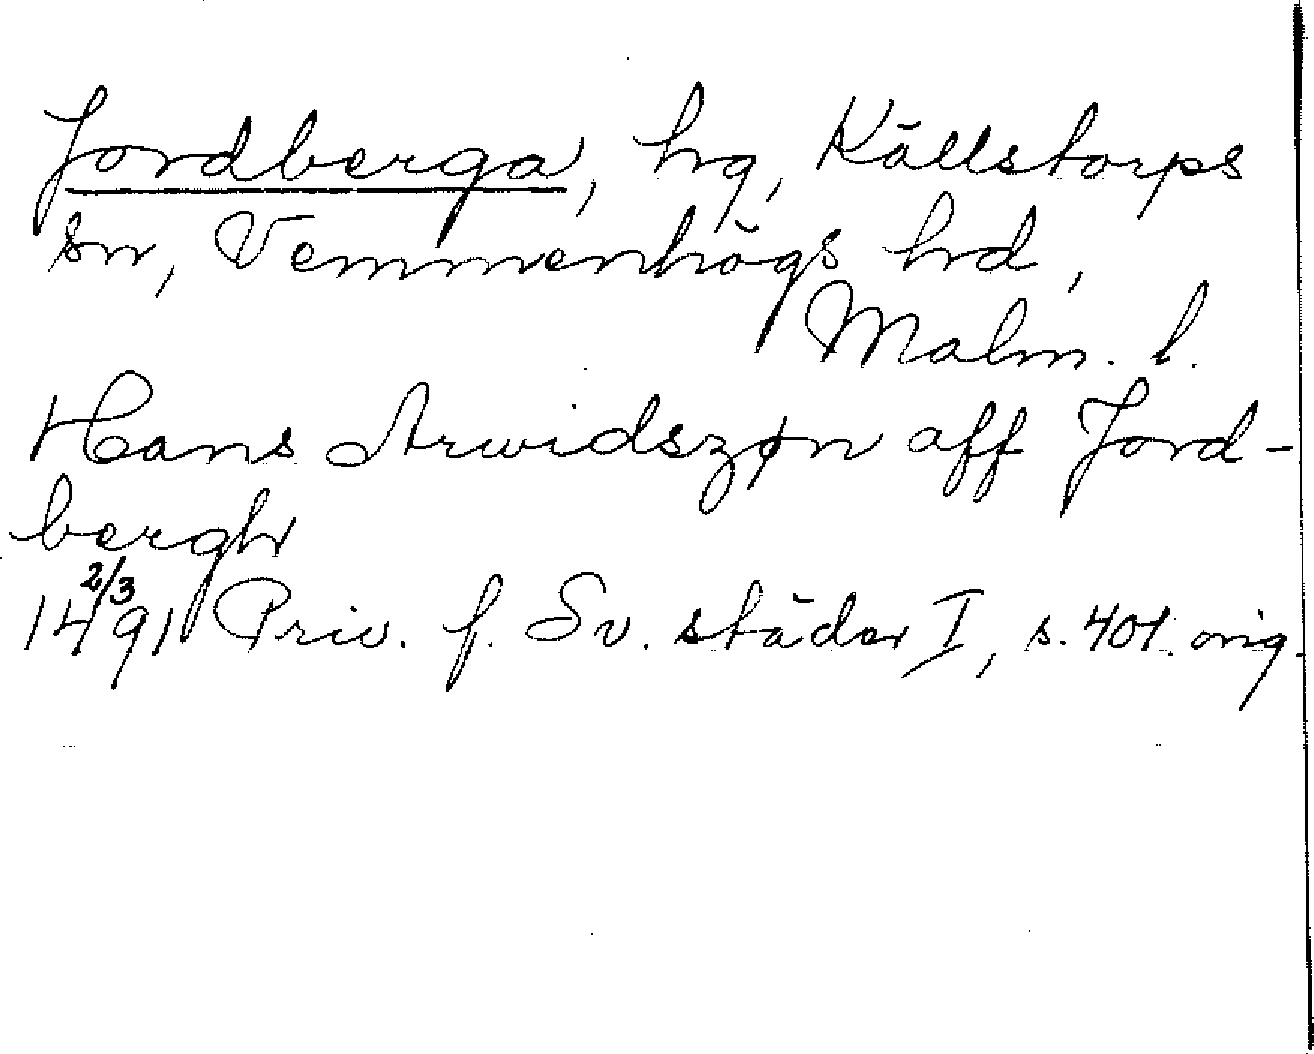 Jordberga, hg, Källstorps
sn, Vemmenhögs hd,
Malm. l.
Hans Arwidszøn aff Jord-
bergh
2/3
1491 Priv. f. Sv. städer I, s. 401. orig.